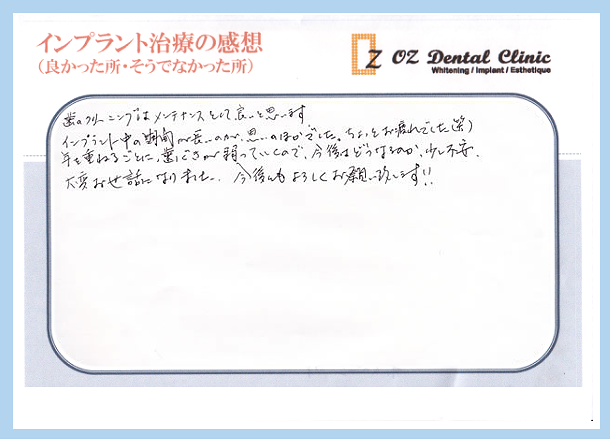 インプラント治療の感想
(良かった所・そうでなかった所)
OZ Dental Clinic
Whitening / Implant / Esthetique
歯のクリーニングはメンテナンスとして良いと思います
インプラント中の期間が長いのが、思いのほかでした。ちょっとお疲れでした(笑)
年を重ねるごとに、歯ぐきが弱っていくので、今後はどうなるのか、少し不安。
大変お世話になりました。今後ともよろしくお願い致します!!